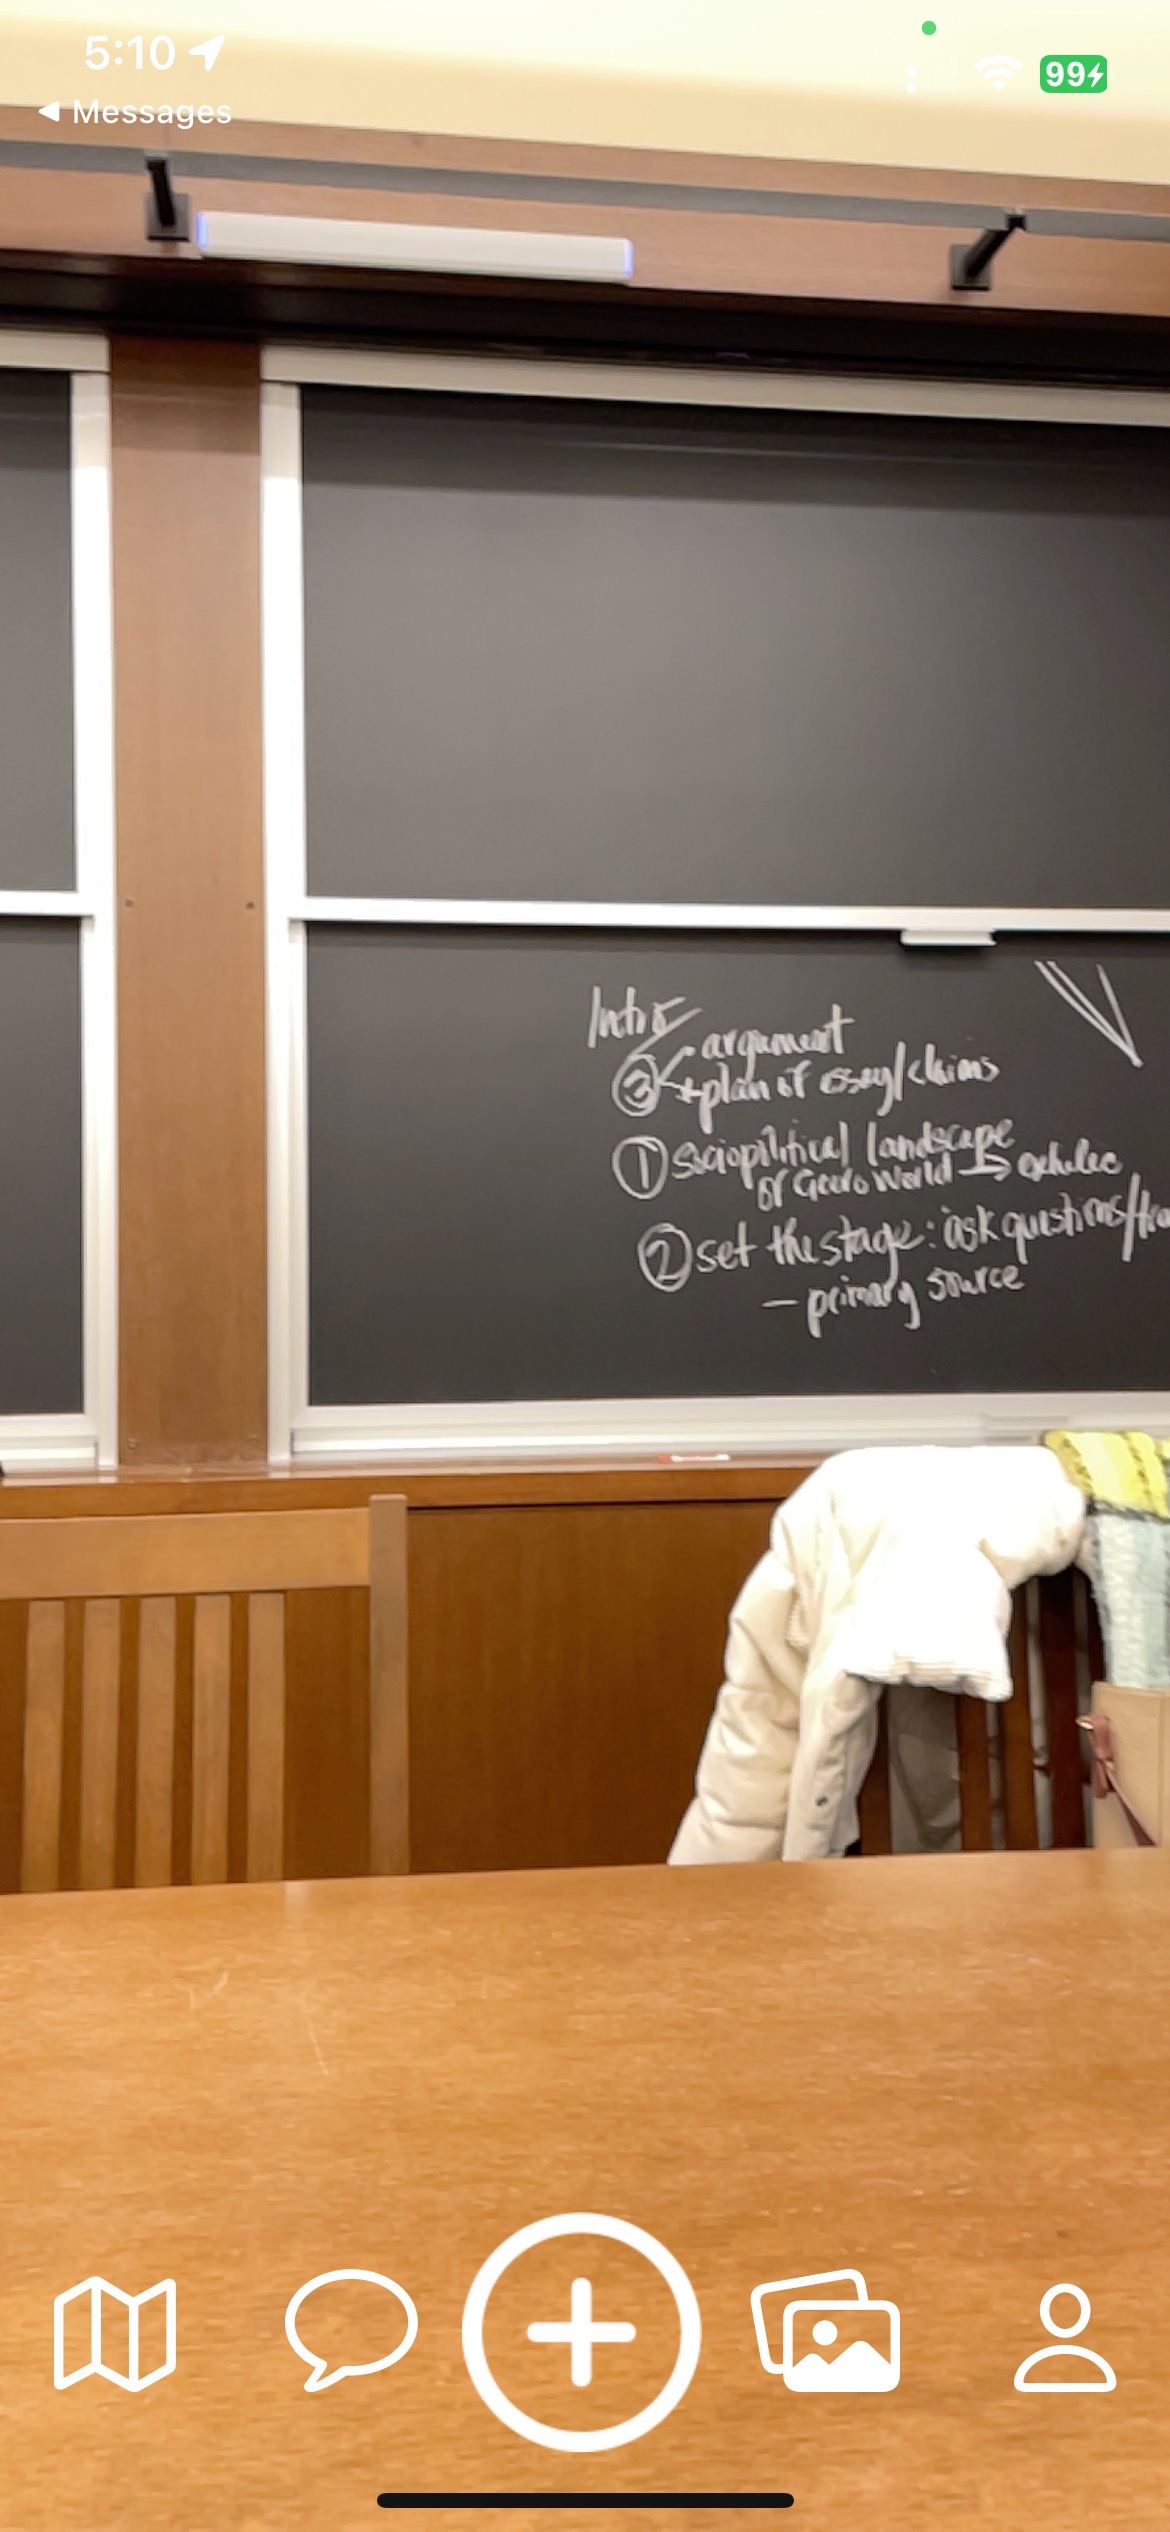 5:10
99
Messages
Intro
argument
③ + plan of essay/claims
① sociopolitical landscape
of Greco World →
② set the stage: ask questions/
– primary source